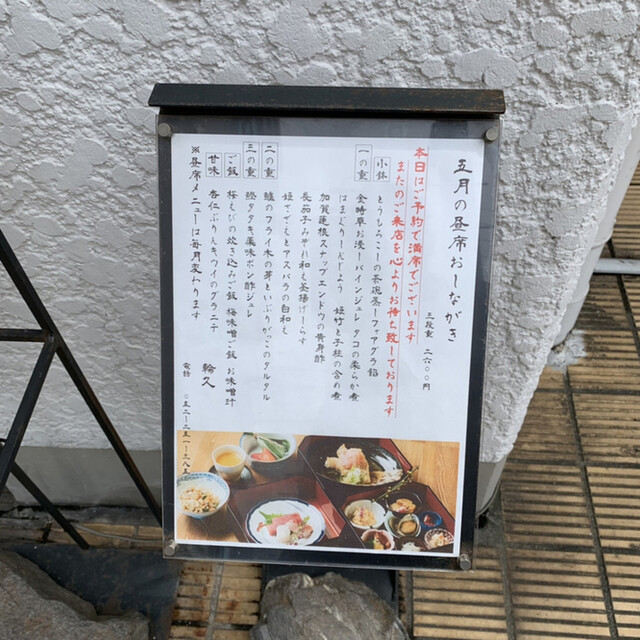 五月の昼席おしながき
三段重 二六〇〇円
本日はご予約で満席でございます
またのご来店を心よりお待ち致しております
小鉢
とうもろこしの茶碗蒸し フォアグラ餡
一の重
金時草お浸し パインジュレ タコの柔らか煮
はまぐりしんじょう 姫竹と子持の含め煮
加賀蓮根スナップエンドウの黄身酢
長茄子みぞれ和え 釜揚げしらす
姫さざえとアスパラの白和え
二の重
鱸のフライ 木の芽といぶりがっこのタルタル
三の重
鰹のタタキ 薬味ポン酢ジュレ
ご飯
桜えびの炊き込みご飯 梅味噌ご飯 お味噌汁
甘味
杏仁ぷりん キウイのグラニテ
※昼席メニューは毎月変わります
輪久
電話 〇五二-二五一-一八五